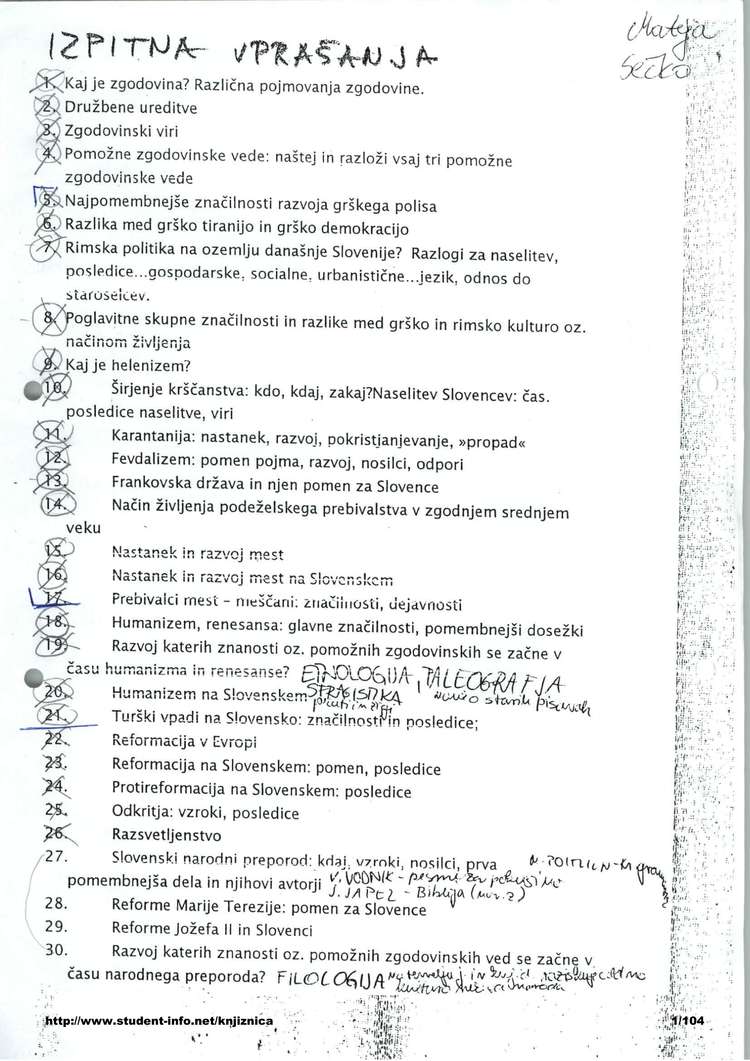 IZPITNA VPRAŠANJA
Mateja
Sečko
1. Kaj je zgodovina? Različna pojmovanja zgodovine.
2. Družbene ureditve
3. Zgodovinski viri
4. Pomožne zgodovinske vede: naštej in razloži vsaj tri pomožne
zgodovinske vede
5. Najpomembnejše značilnosti razvoja grškega polisa
6. Razlika med grško tiranijo in grško demokracijo
7. Rimska politika na ozemlju današnje Slovenije? Razlogi za naselitev,
posledice...gospodarske, socialne, urbanistične...jezik, odnos do
staroselcev.
8. Poglavitne skupne značilnosti in razlike med grško in rimsko kulturo oz.
načinom življenja
9. Kaj je helenizem?
10. Širjenje krščanstva: kdo, kdaj, zakaj?Naselitev Slovencev: čas.
posledice naselitve, viri
11. Karantanija: nastanek, razvoj, pokristjanjevanje, »propad«
12. Fevdalizem: pomen pojma, razvoj, nosilci, odpori
13. Frankovska država in njen pomen za Slovence
14. Način življenja podeželskega prebivalstva v zgodnjem srednjem
veku
15. Nastanek in razvoj mest
16. Nastanek in razvoj mest na Slovenskem
17. Prebivalci mest – meščani: značilnosti, dejavnosti
18. Humanizem, renesansa: glavne značilnosti, pomembnejši dosežki
19. Razvoj katerih znanosti oz. pomožnih zgodovinskih se začne v
času humanizma in renesanse? ETNOLOGIJA, PALEOGRAFIJA
20. Humanizem na Slovenskem
21. Turški vpadi na Slovensko: značilnosti in posledice;
22. Reformacija v Evropi
23. Reformacija na Slovenskem: pomen, posledice
24. Protireformacija na Slovenskem: posledice
25. Odkritja: vzroki, posledice
26. Razsvetljenstvo
27. Slovenski narodni preporod: kdaj, vzroki, nosilci, prva
pomembnejša dela in njihovi avtorji V. VODNIK - pesmi za
J. JAPELJ - Biblija
28. Reforme Marije Terezije: pomen za Slovence
29. Reforme Jožefa II in Slovenci
30. Razvoj katerih znanosti oz. pomožnih zgodovinskih ved se začne v
času narodnega preporoda? FILOLOGIJA
http://www.student-info.net/knjiznica 1/104